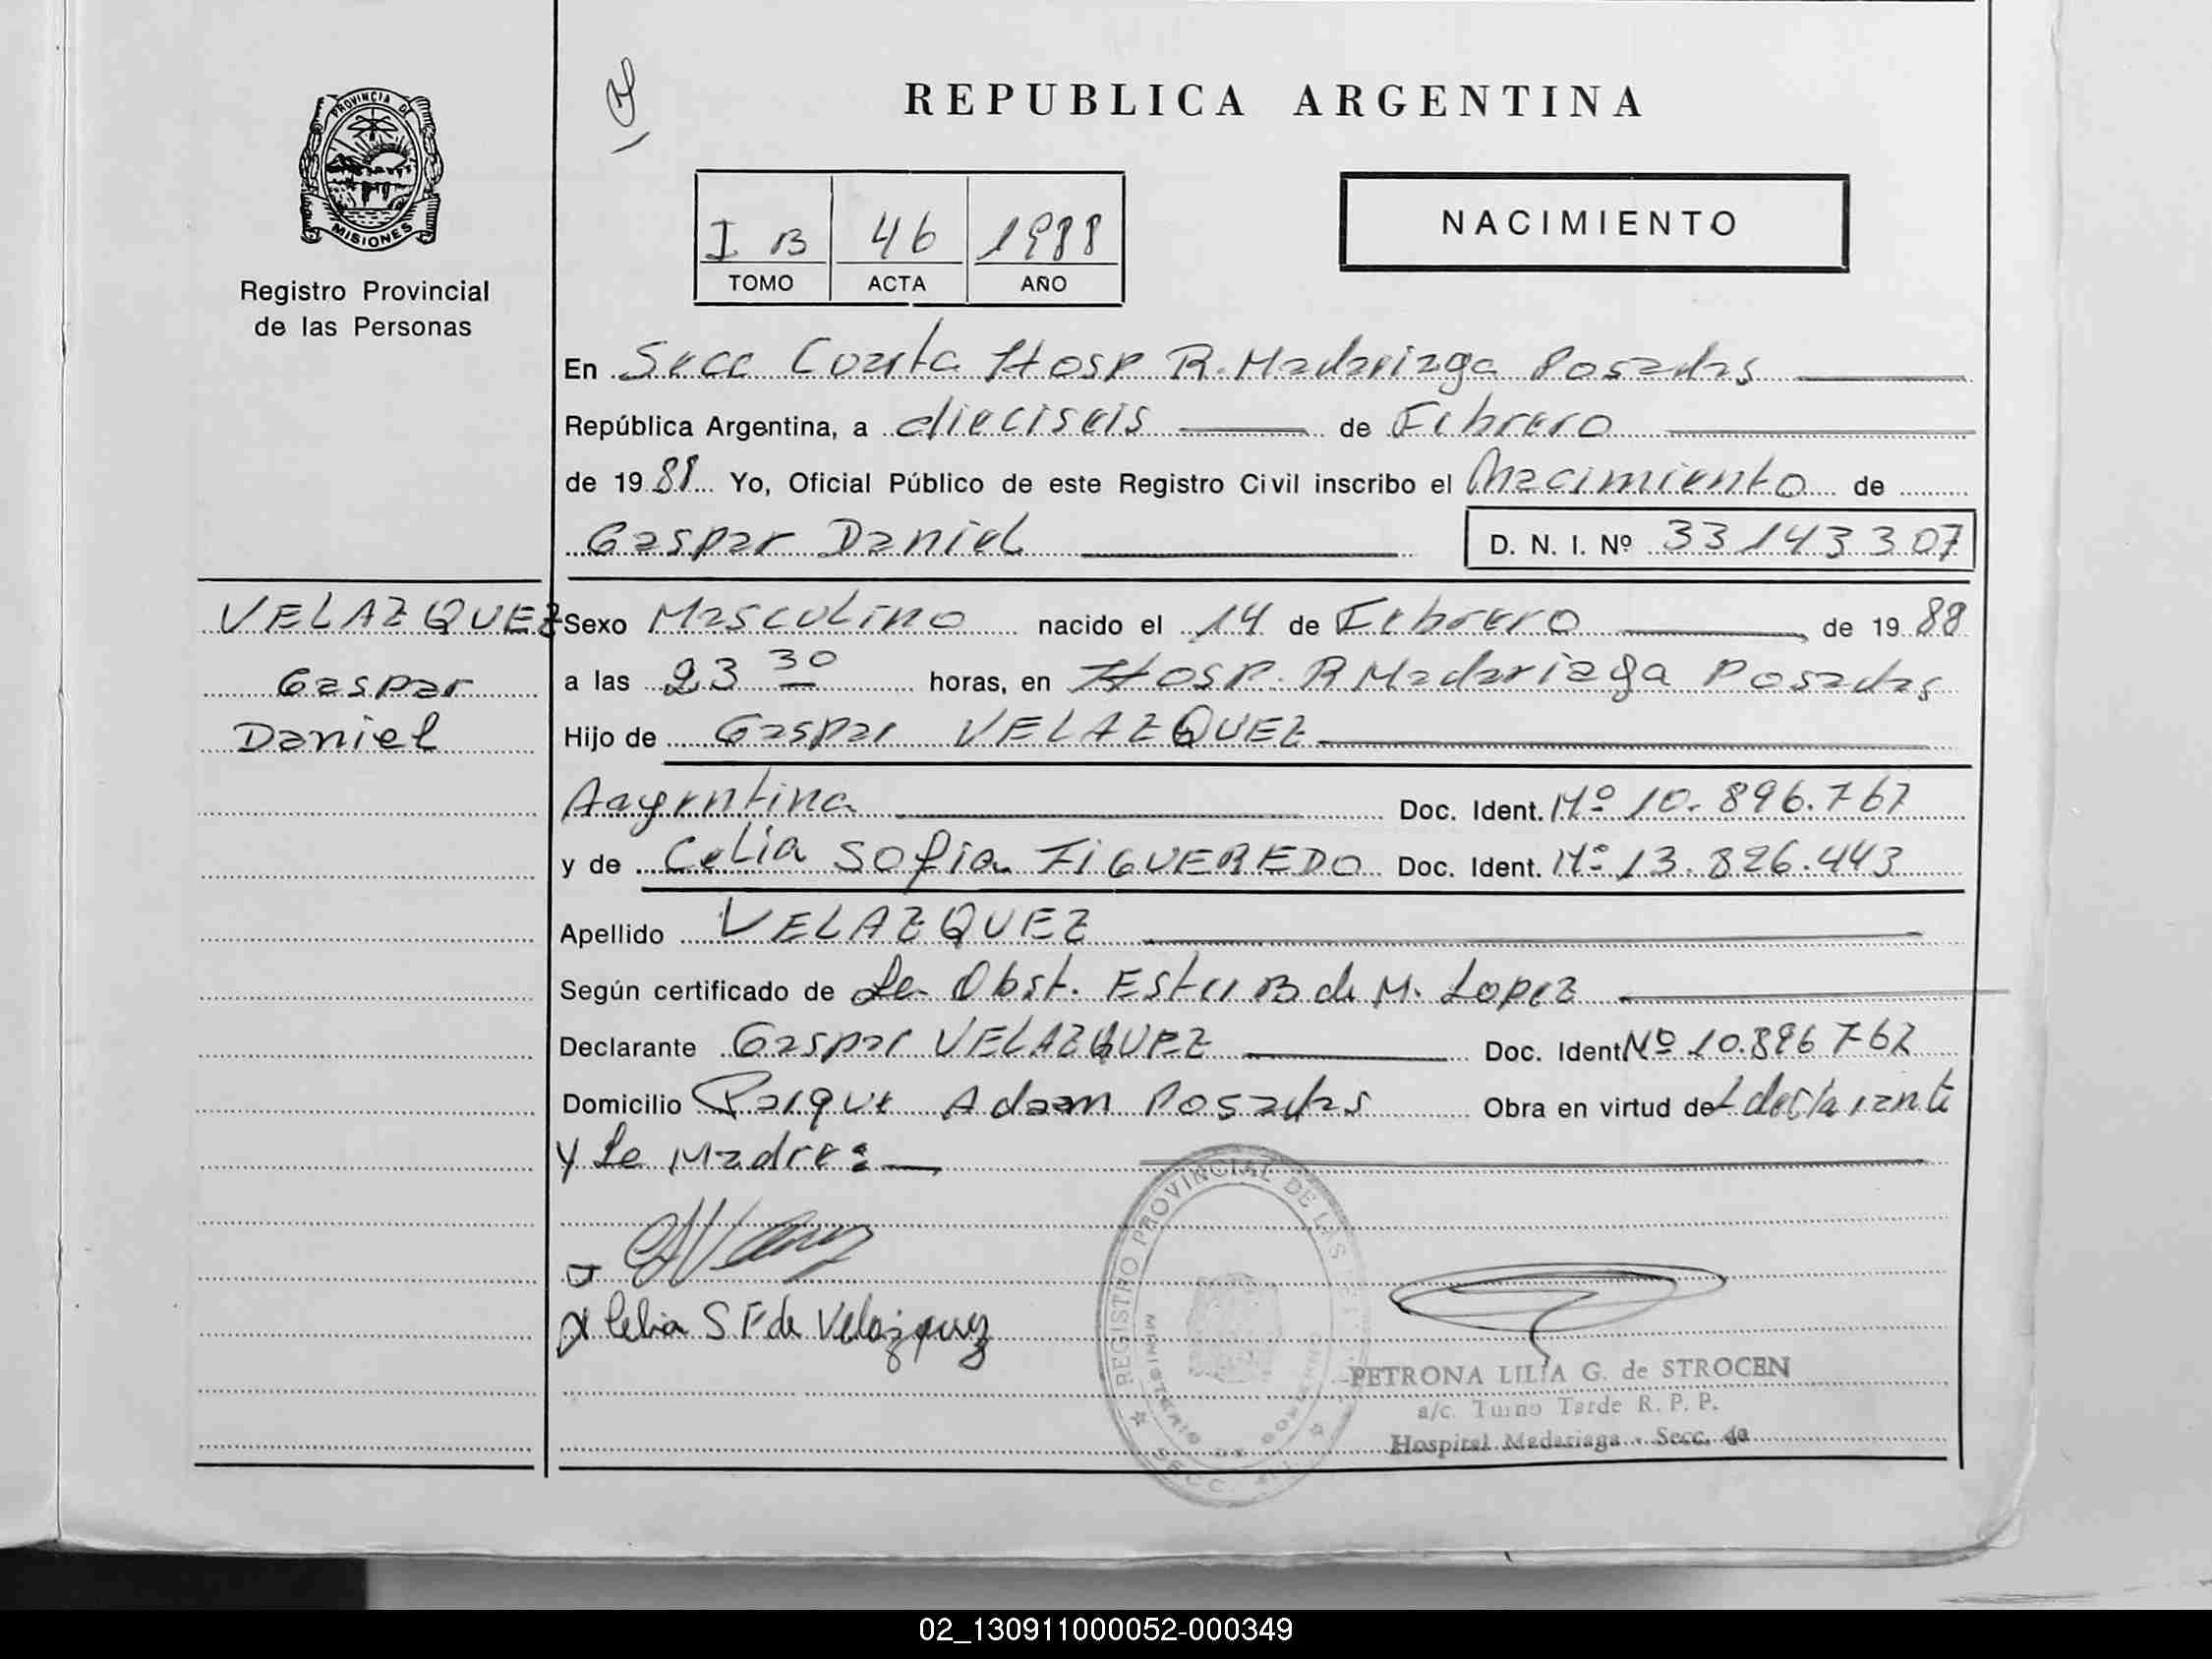 REPUBLICA ARGENTINA
PROVINCIA DE
MISIONES
Registro Provincial
de las Personas
I B 46 1988
TOMO ACTA AÑO
NACIMIENTO
En Secc Cuarta Hosp R. Madariaga Posadas
República Argentina, a dieciseis de Febrero
de 1988 Yo, Oficial Público de este Registro Civil inscribo el Nacimiento de
Gaspar Daniel D. N. I. Nº 33143307
VELAZQUEZ
Gaspar
Daniel
Sexo Masculino nacido el 14 de Febrero de 1988
a las 23 30 horas, en Hosp. R Madariaga Posadas
Hijo de Gaspar VELAZQUEZ
Doc. Ident. Nº 10.896.767
y de Celia Sofia FIGUEREDO Doc. Ident. Nº 13.826.443
Apellido VELAZQUEZ
Según certificado de La Obst. B de M. Lopez
Declarante Gaspar VELAZQUEZ Doc. Ident Nº 10.896767
Domicilio Parque Adam Posadas Obra en virtud del declarante
y La Madre:
Celia S F de Velazquez
REGISTRO PROVINCIAL DE LAS
MINISTERIO DE GOBIERNO
SECC.
PETRONA LILIA G. de STROCEN
a/c. Turno Tarde R. P. P.
Hospital Madariaga - Secc. 4a
02_130911000052-000349